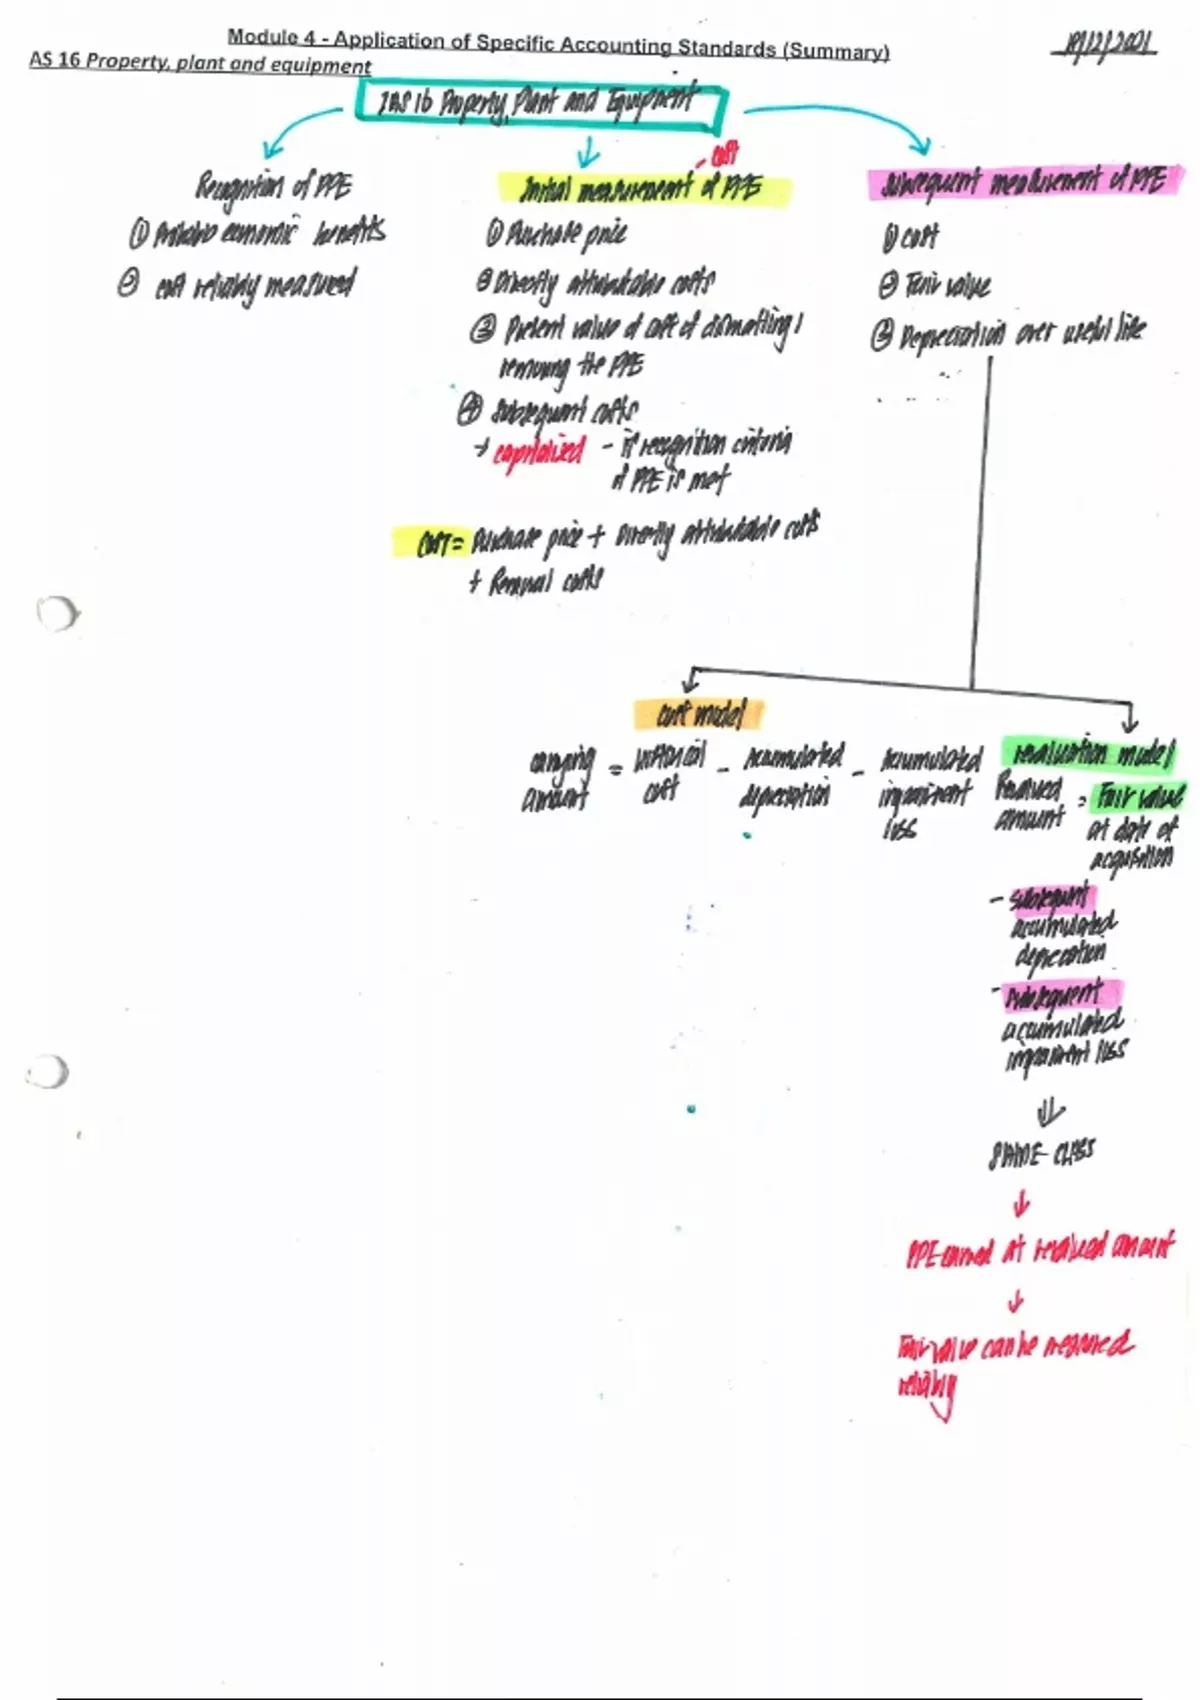 Module 4 - Application of Specific Accounting Standards (Summary)
19/12/2021
AS 16 Property, plant and equipment
IAS 16 Property, Plant and Equipment
Recognition of PPE
① Probable economic benefits
② cost reliably measured
- cost
Initial measurement of PPE
① Purchase price
② Directly attributable costs
③ Present value of cost of dismantling /
removing the PPE
④ Subsequent costs
→ capitalised - if recognition criteria
of PPE is met
Cost = Purchase price + Directly attributable costs
+ Removal costs
Subsequent measurement of PPE
① cost
② Fair value
③ Depreciation over useful life
cost model
carrying amount = historical cost - accumulated depreciation - accumulated impairment loss
revaluation model
Revalued amount = Fair value
at date of
acquisition
- subsequent
accumulated
depreciation
- subsequent
accumulated
impairment loss
SAME CLASS
PPE carried at revalued amount
Fair value can be measured
reliably